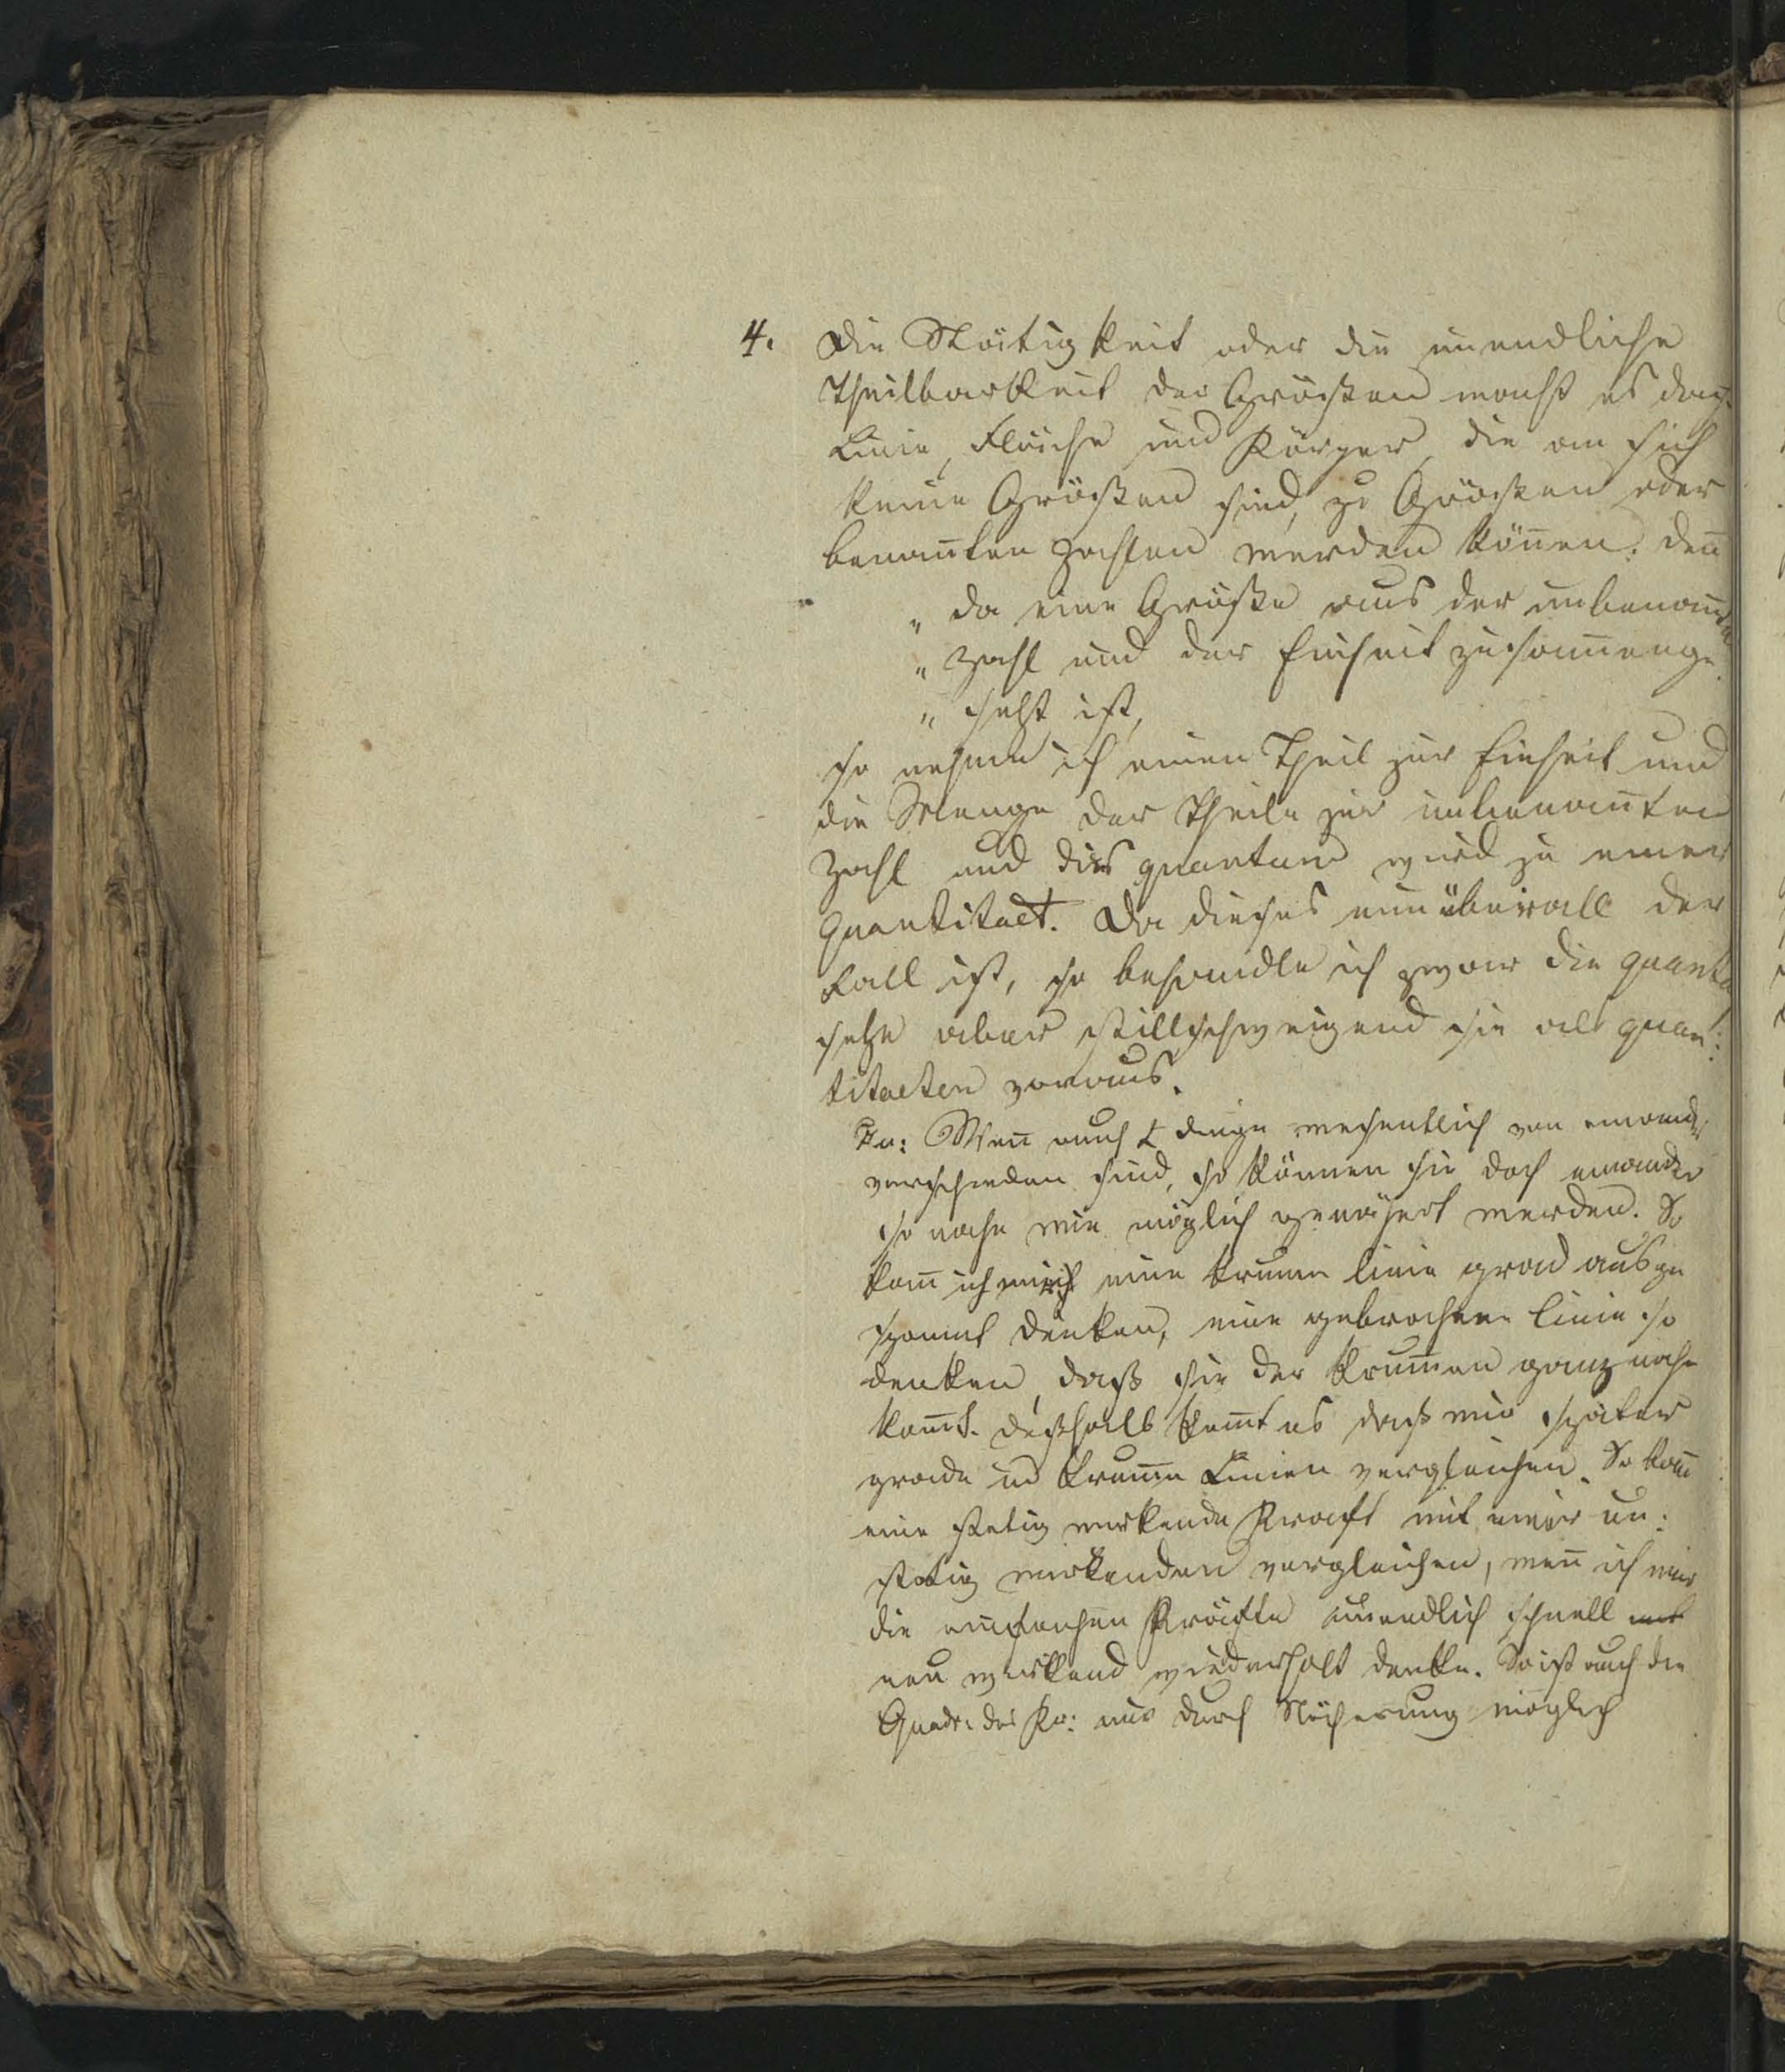 4. Die Stätigkeit oder die unendliche
Theilbarkeit der Größen macht es daß
Linie, Fläche und Körper, die an sich
keine Größen sind, zu Größen oder
benan̄ten Zahlen werden kön̄en: den̄
„ da eine Größe aus der unbenan̄ten
„ Zahl und der Einheit zusam̄enge
„ setzt ist,
so nehme ich einen Theil zur Einheit und
die Menge der Theile zur unbenan̄ten
Zahl und dies quantum wird zu einer
Quantitaet. Da dieses nun überall der
Fall ist, so behandle ich zwar die quanta
setze aber stillschweigend sie als quan:
titaeten voraus.
Wen̄ auch 2 Dinge wesentlich von einander
verschieden sind, so können sie doch einander
so nahe wie möglich genähert werden. So
kan̄ ich mir eine krum̄e Linie grad ausge
spannt denken, eine gebrochene Linie so
denken, daß sie der krum̄en ganz nahe
kom̄t. Deßhalb kom̄t es daß wir später
grade und krum̄e Linien vergleichen. So kan̄
eine stetig wirkende Kraft mit einer un:
stetig wirkenden vergleichen, wen̄ ich mir
die Kräfte unendlich schnell
neu wirkend wiederholt denke. So ist auch die
Quadr: des Kr: nur durch Näherung möglich